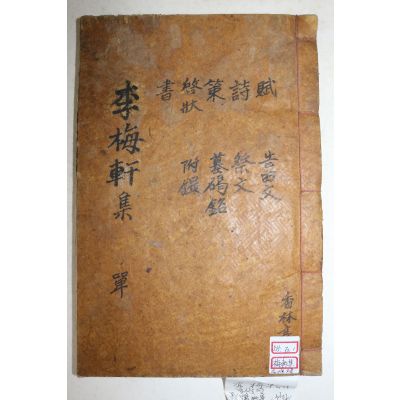 賦
詩
策
啓狀
書
告由文
祭文
墓碣銘
附錄
李梅軒集 單
香林